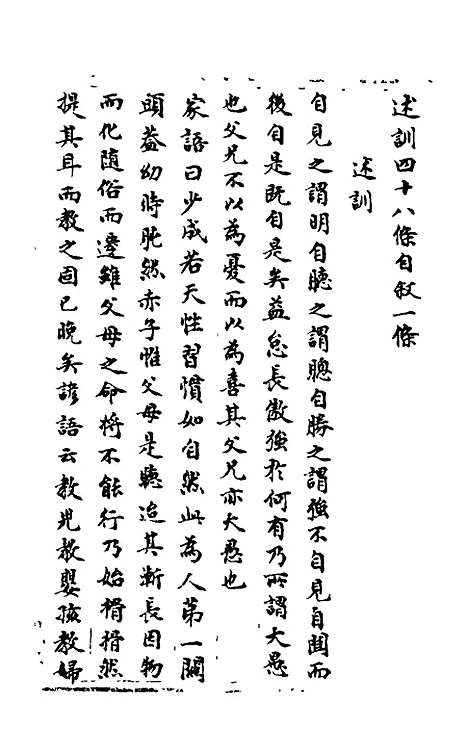 述訓四十八條自敘一條
述訓
自見之謂明自聽之謂聰自勝之謂強不自見自聞而
後自是既自是矣益怠長傲強於何有乃所謂大愚
也父兄不以為憂而以為喜其父兄亦大愚也
家語曰少成若天性習慣如自然此為人第一關
頭蓋幼時肫然赤子惟父母是聽迨其漸長因物
而化随俗而遷雖父母之命將不能行乃始揹揹然
提其耳而教之固已晚矣諺語云教児教嬰孩教婦